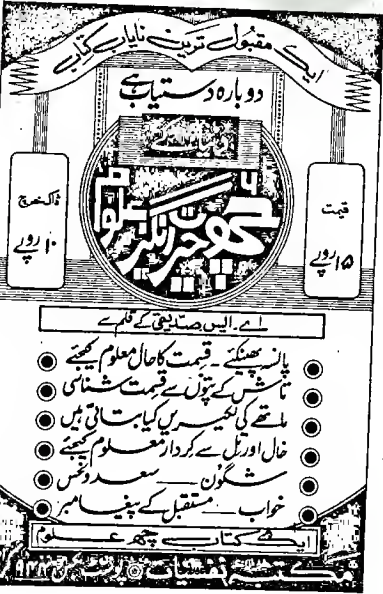 ایک مقبول ترین نایاب کتاب
دوبارہ دستیاب ہے
ڈاک خرچ
۱۰ روپے
۶ حیرت انگیز علوم
قیمت
۱۵ روپے
اے۔ ایس صدیقی کے قلم سے
پانسہ پھینکئے ۔ قسمت کا حال معلوم کیجئے
تاش کے پتوں سے قسمت شناسی
ماتھے کی لکھیریں کیا بتاتی ہیں
خال اور تل سے کردار معلوم کیجئے
شگون — سعد و نحس
خواب — مستقبل کے پیغامبر
ایک کتاب چھ علوم
مکتبہ نفسیات پوسٹ بکس